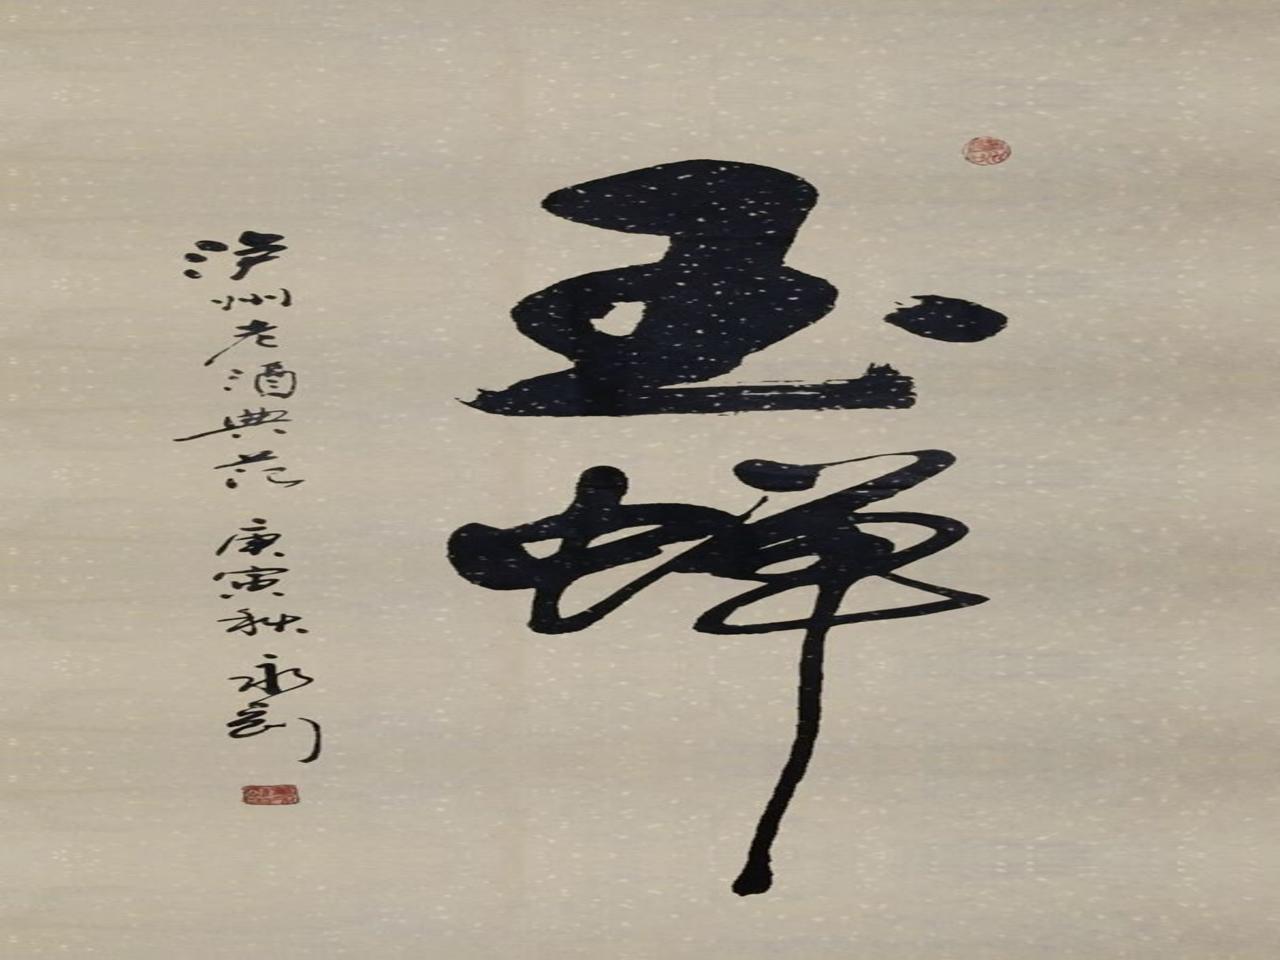 玉蝉
泸州老酒典范 庚寅秋 永刚